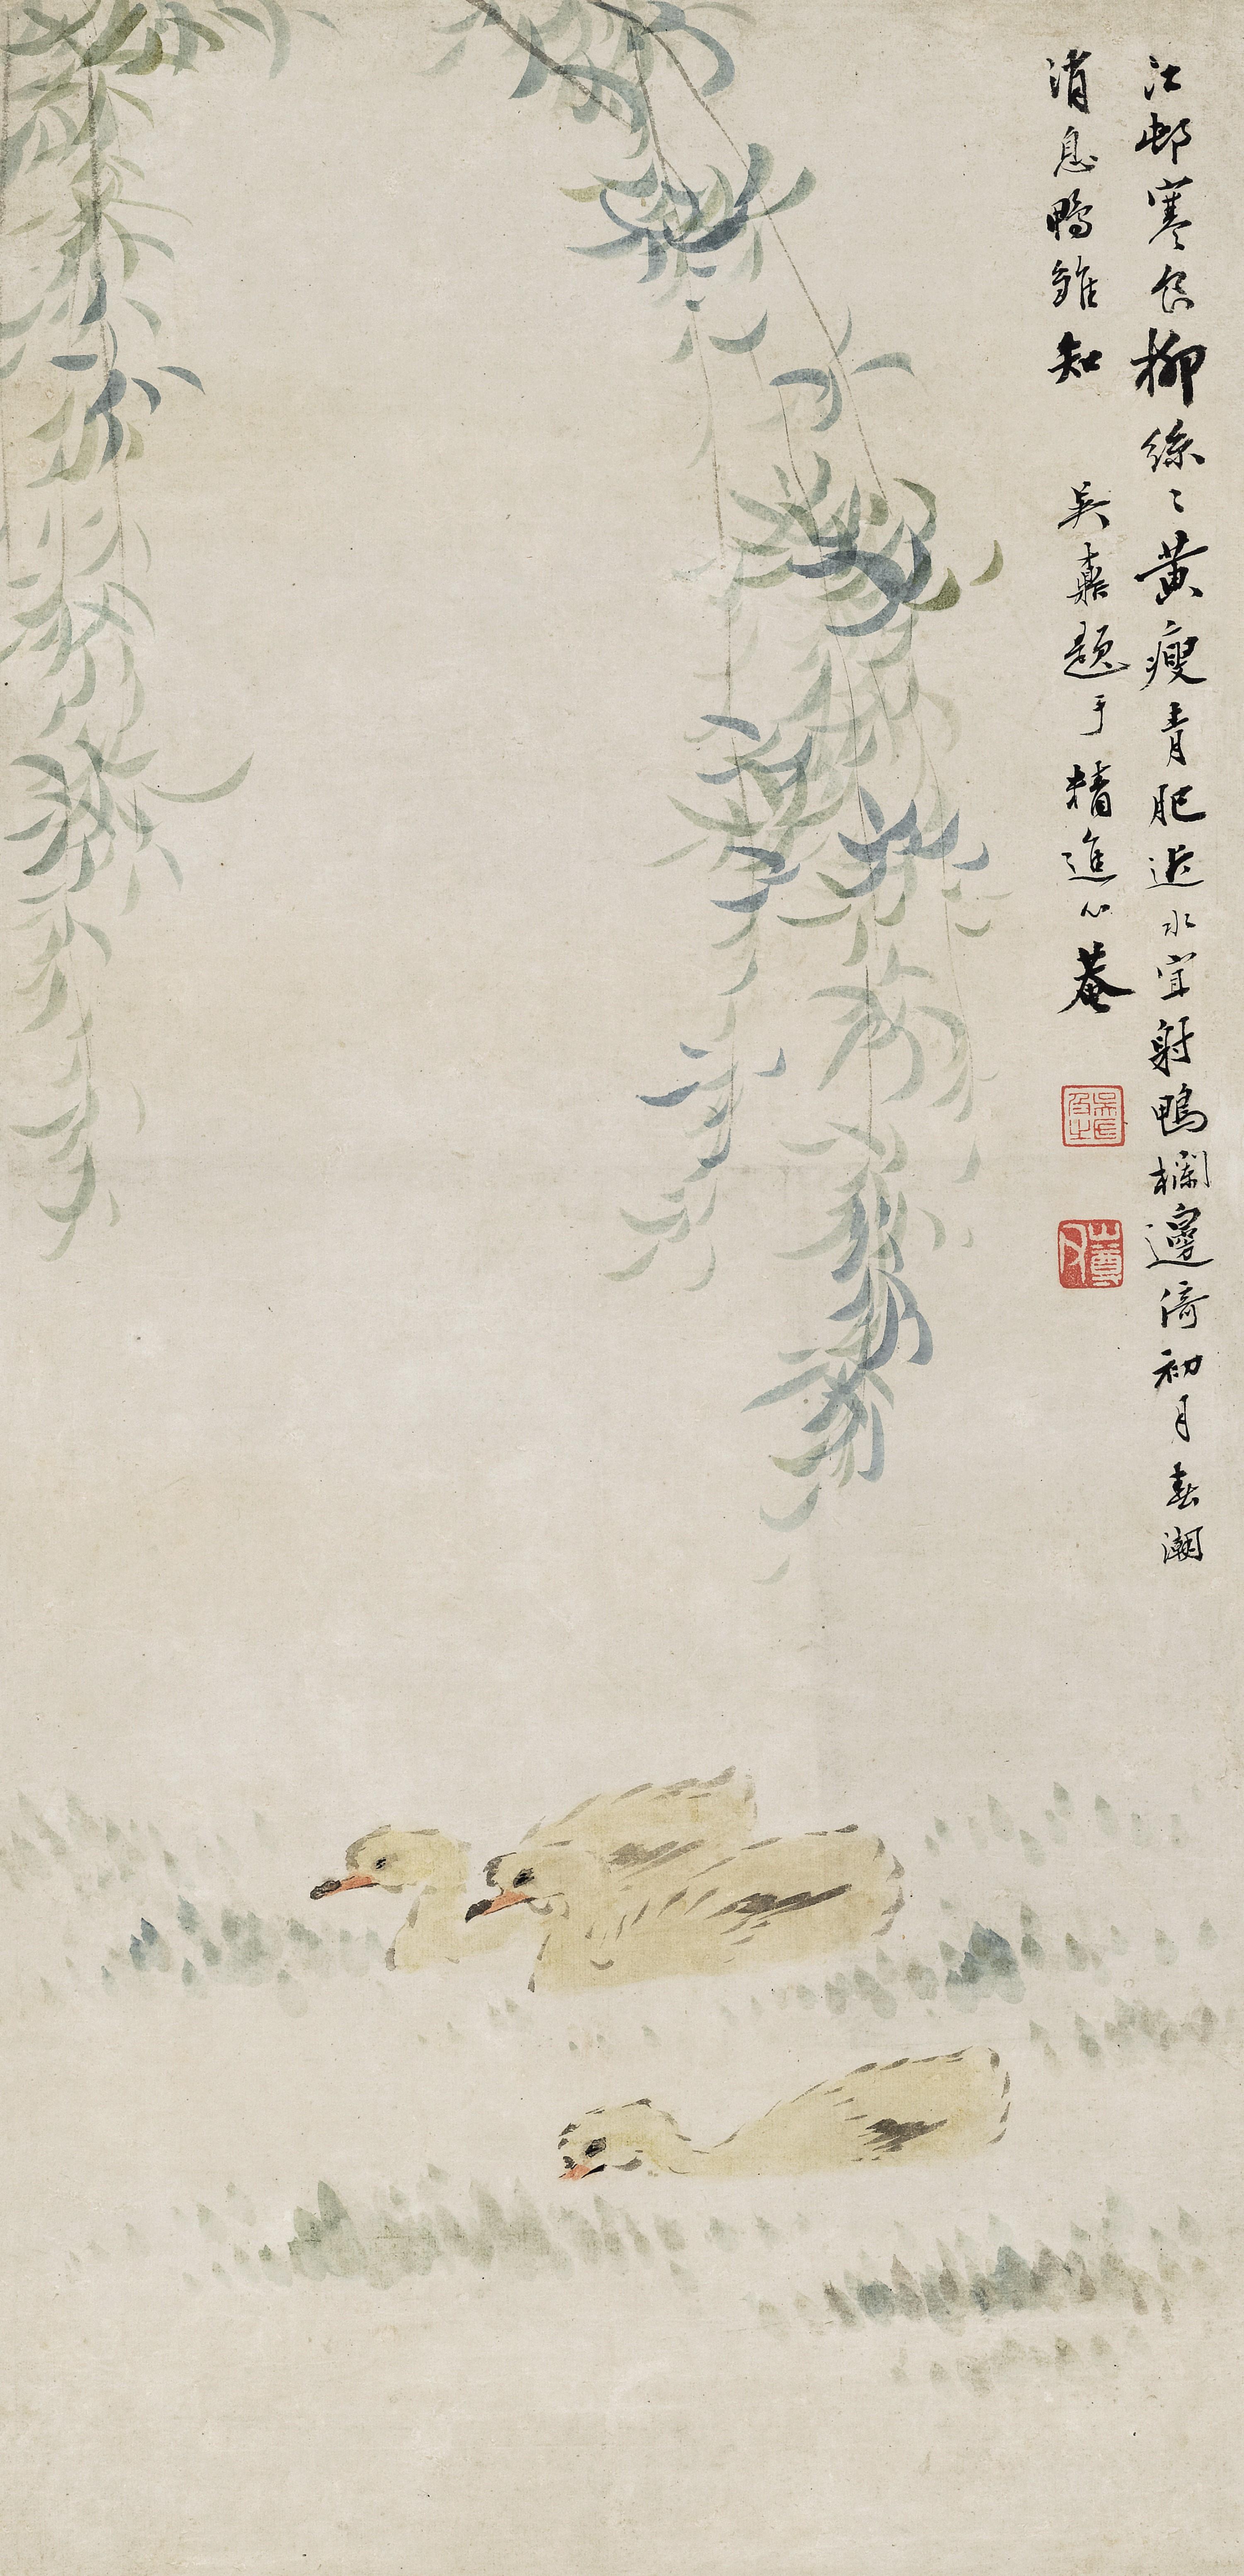 江邨寒食柳絲〻黃瘦青肥近水宜射鴨欄邊倚初月春潮
消息鴨雛知 吳鼒題于精進心菴
山尊